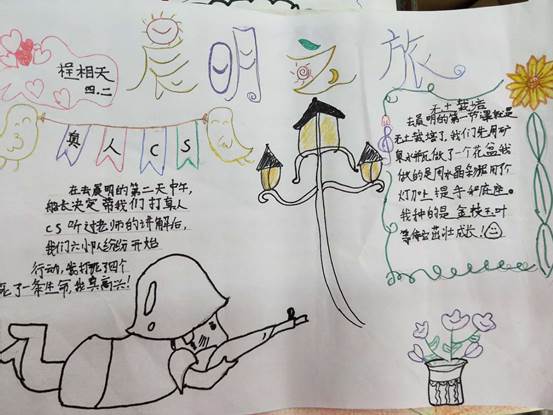 晨明之旅
程相天
四.二
真人CS
在去晨明的第二天中午,
组长决定带我们打真人
CS听过老师的讲解后,
我们六小队纷纷开始
行动,尝打死了四个
死了一条生命,我真高兴!
无土栽培
去晨明的第一节课就是
无土栽培了,我们先用矿
泉水瓶做了一个花盆我
做的是用水晶
灯加上提手和底座。
我种的是金枝玉叶
茁壮成长!